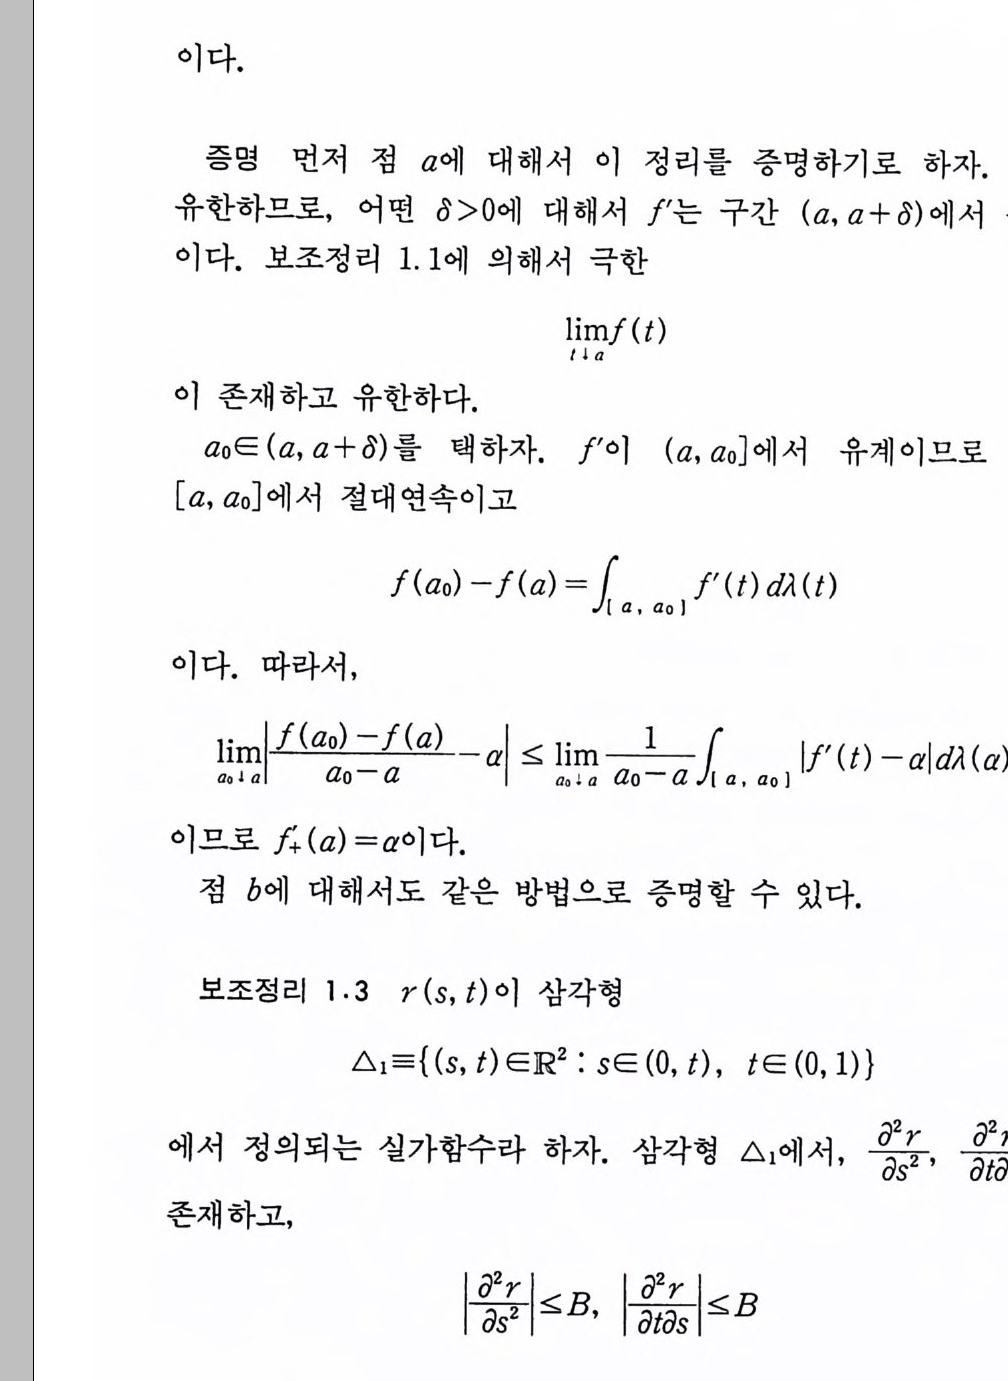 이다.
증명 먼저 점 a에 대해서 이 정리를 증명하기로 하자.
유한하므로, 어떤 δ>0에 대해서 f′는 구간 (a, a+δ)에서
이다. 보조정리 1.1에 의해서 극한
lim_{t↓a} f(t)
이 존재하고 유한하다.
a₀∈(a, a+δ)를 택하자. f′이 (a, a₀]에서 유계이므로
[a, a₀]에서 절대연속이고
f(a₀)−f(a)=∫_{[a, a₀]} f′(t)dλ(t)
이다. 따라서,
lim_{a₀↓a} |(f(a₀)−f(a))/(a₀−a) − α| ≤ lim_{a₀↓a} 1/(a₀−a) ∫_{[a, a₀]} |f′(t)−α|dλ(a)
이므로 f′₊(a)=α이다.
점 b에 대해서도 같은 방법으로 증명할 수 있다.
보조정리 1.3 r(s, t)이 삼각형
△₁≡{(s, t)∈ℝ² : s∈(0, t), t∈(0, 1)}
에서 정의되는 실가함수라 하자. 삼각형 △₁에서, ∂²r/∂s²,
존재하고,
|∂²r/∂s²|≤B, |∂²r/∂t∂s|≤B